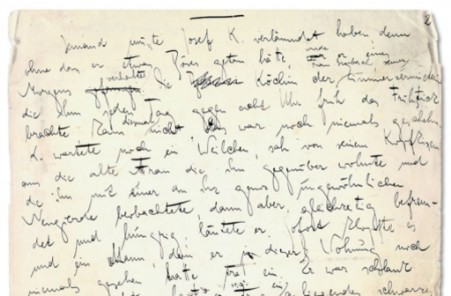 2
Jemand mußte Josef K. verläumdet haben, denn
ohne daß er etwas Böses getan hätte, wurde er eines
Morgens verhaftet. Die Köchin der Zimmervermieterin
die ihm jeden Tag gegen acht Uhr früh das Frühstück
brachte kam diesmal nicht. Das war noch niemals geschehn.
K. wartete noch ein Weilchen, sah von seinem Kopfkissen
aus die alte Frau die ihm gegenüber wohnte und
die ihn mit einer an ihr ganz ungewöhnlichen
Neugierde beobachtete, dann aber, gleichzeitig befrem-
det und hungrig, läutete er. Sofort klopfte es
und ein Mann, den er in dieser Wohnung noch
niemals gesehen hatte trat ein. Er war schlank
anliegendes schwarzes